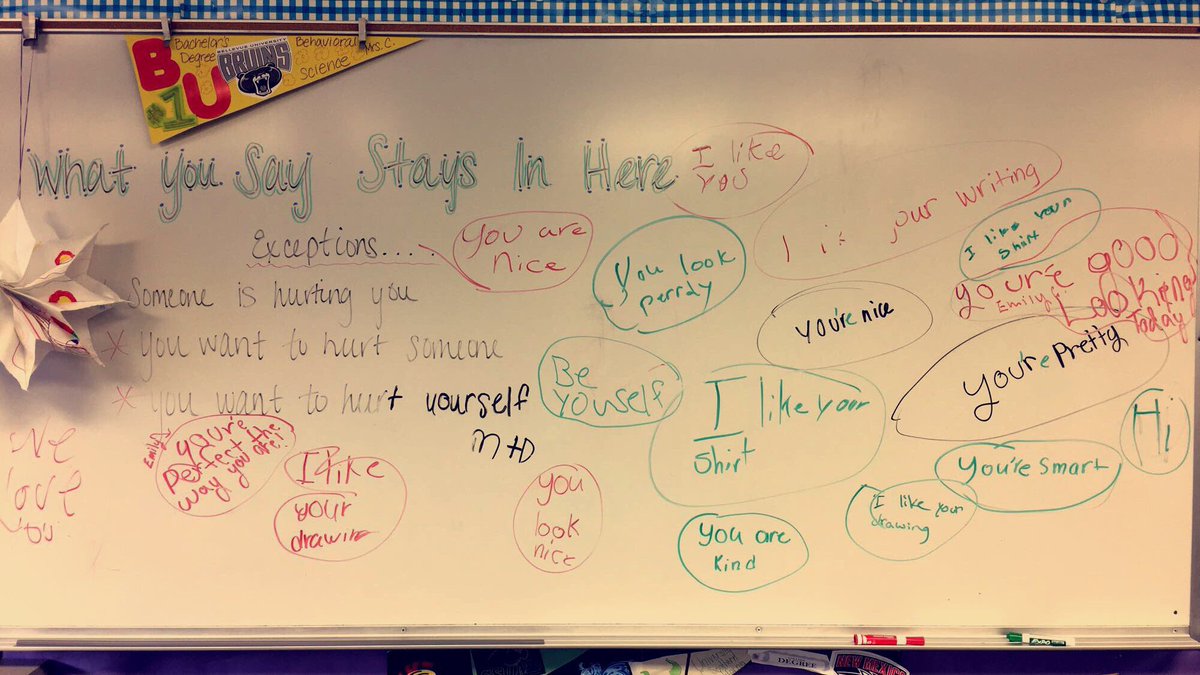 BU
#1
Bachelor's
Degree
BELLEVUE UNIVERSITY
BRUINS
Behavioral
science
Mrs. C.
What you Say Stays In Here
Exceptions.....
Someone is hurting you
* you want to hurt someone
* you want to hurt yourself
I like
you
You are
nice
You look
perrdy
your writing
I like your
shirt
you're good
Looking
Today
Emily
you're nice
you're pretty
Be
youself
I like your
Shirt
Hi
We
love
you
Emily
you're
perfect the
way you are!
I like
your
drawing
you
look
nice
You are
kind
I like your
drawing
You're smart
DEGREE
NEW MEXICO
EXPO